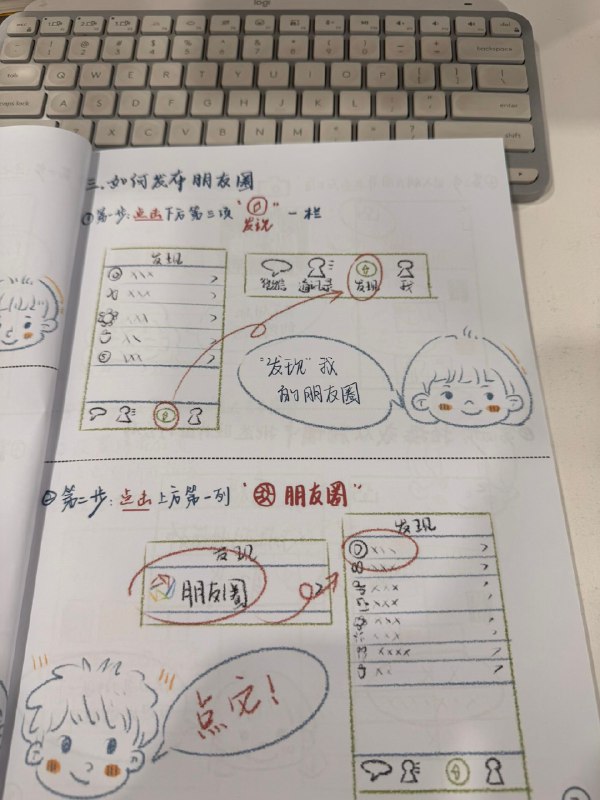 logi
backspace
tab Q W E R T Y U I O P
caps lock A S D F G H J K L enter
Z X C V B N M shift
三.如何发布朋友圈
①第一步:点击下方第三项"发现"一栏
发现
xxx
xxx
微信 通讯录 发现 我
"发现"我
的朋友圈
②第二步:点击上方第一列"朋友圈"
发现
朋友圈
发现
xxx
xxx
xxx
xxx
xxx
xxxx
xx
点它!